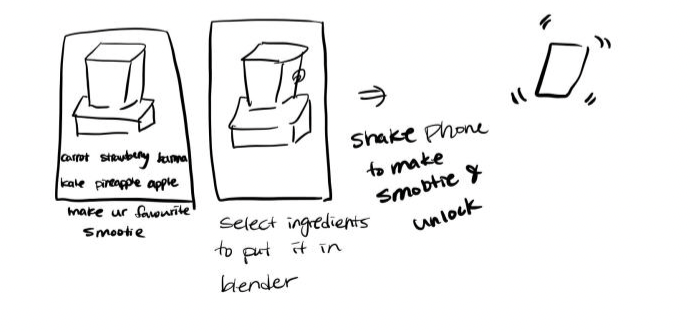 carrot strawbery banna
kale pineapple apple
make ur favourite
smootie
select ingredients
to put it in
blender
shake phone
to make
smobtie &
unlock